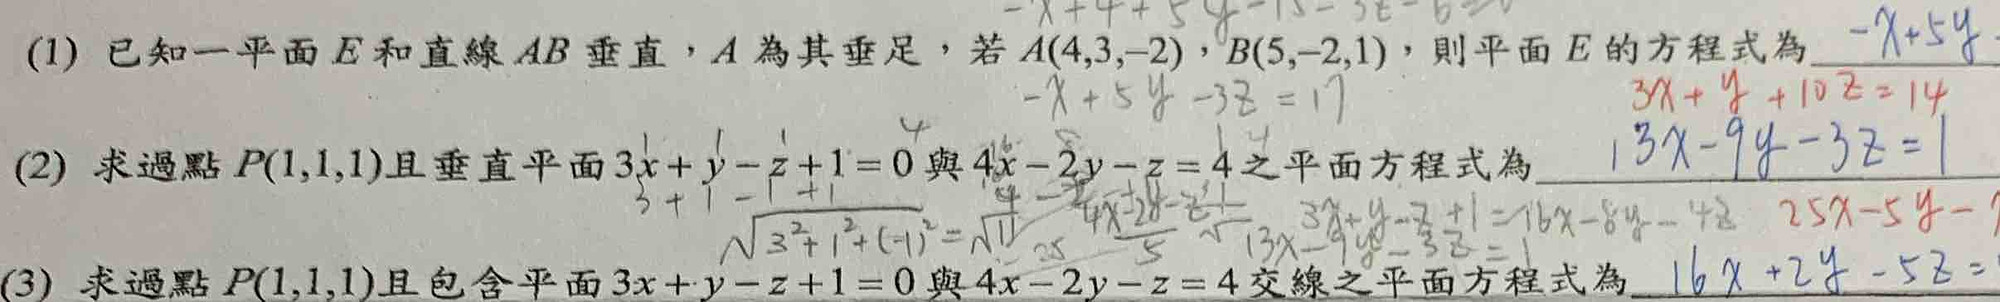 -x+4+5y-15-3z-6=0
(1) 已知一平面 E 和直線 AB 垂直，A 為其垂足，若 A(4,3,−2)，B(5,−2,1)，則平面 E 的方程式為 -x+5y-
-x+5y-3z=17
3x+y+10z=14
(2) 求過點 P(1,1,1)且垂直平面 3x+y−z+1=0 與 4x−2y−z=4 之平面方程式為 13x-9y-3z=1
3+1-1+1
√3²+1²+(-1)²=√11
4x-2y-z
5
3x+y-z+1=16x-8y-4z
25x-5y-7
13x-9y-3z=1
(3) 求過點 P(1,1,1)且包含平面 3x+y−z+1=0 與 4x−2y−z=4 交線之平面方程式為 16x+2y-5z=